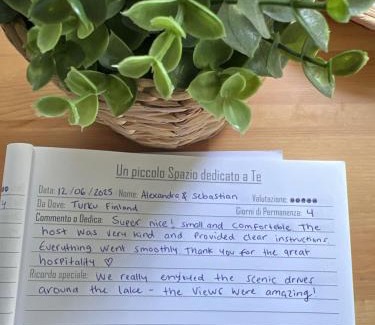 Un piccolo Spazio dedicato a Te
Data: 12/06/2025 Nome: Alexandra & Sebastian Valutazione: ●●●●●
Da Dove: Turku Finland Giorni di Permanenza: 4
Commento o Dedica: Super nice! small and comfortable. The
host was very kind and provided clear instructions
Everything went smoothly Thank you for the great
hospitality ♡
Ricordo speciale: We really enjoyed the scenic drives
around the lake - the views were amazing!